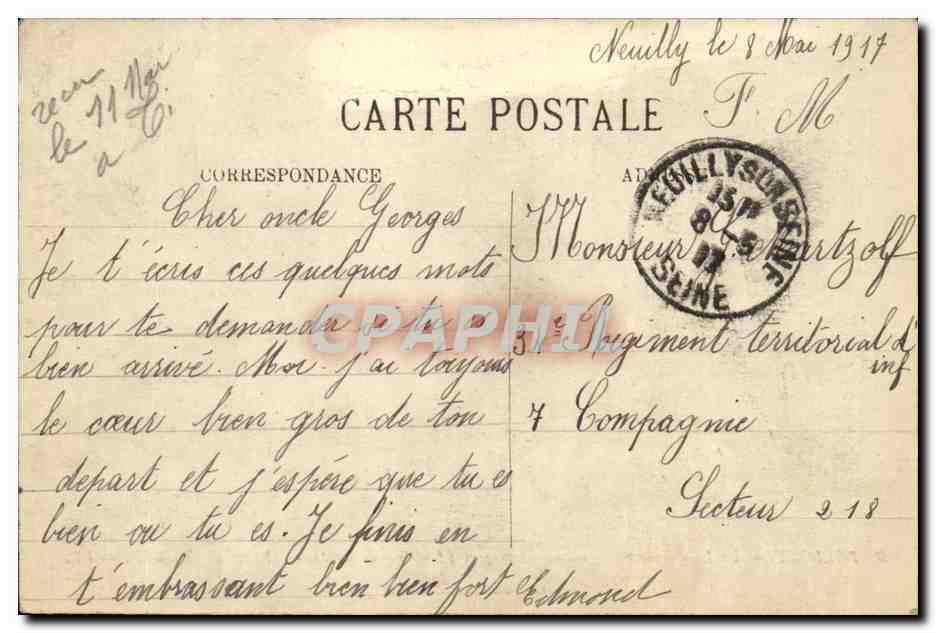 Neuilly le 8 Mai 1917
F. M
recu
le 11 Mai
a
CARTE POSTALE
CORRESPONDANCE
NEUILLY SUR SEINE
15 H
8 - 5
17
SEINE
Cher oncle Georges
Je t'écris ces quelques mots
pour te demander si tu
bien arrivé. Moi j'ai toujours
le cœur bien gros de ton
depart et j'espére que tu es
bien ou tu es. Je finis en
t'embrassant bien bien fort
Edmond
Monsieur
Regiment territorial d'
inf
7 Compagnie
Secteur 218
CPAPHIL